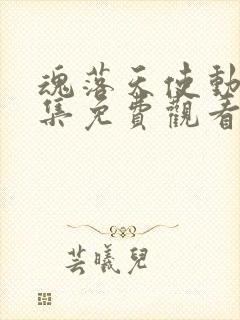 魂落天使動
集免費觀看
芸曦兒